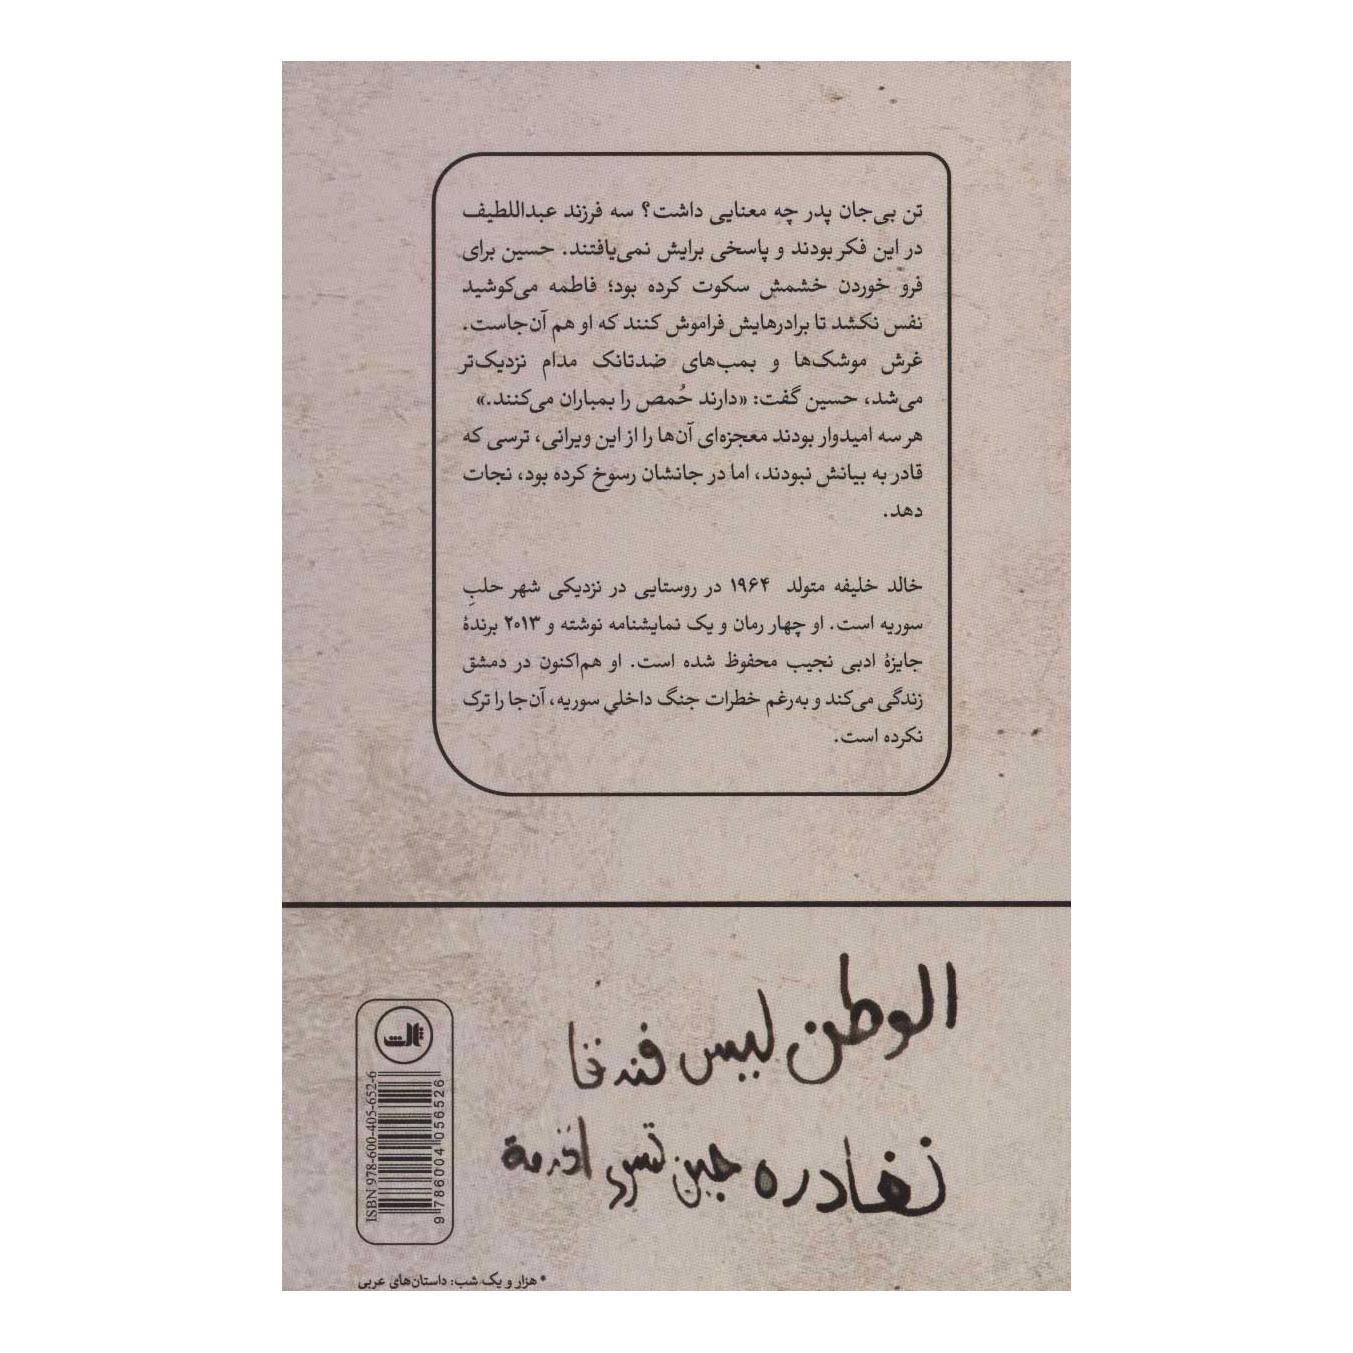 تن بی‌جان پدر چه معنایی داشت؟ سه فرزند عبداللطیف
در این فکر بودند و پاسخی برایش نمی‌یافتند. حسین برای
فرو خوردن خشمش سکوت کرده بود؛ فاطمه می‌کوشید
نفس نکشد تا برادرهایش فراموش کنند که او هم آن‌جاست.
غرش موشک‌ها و بمب‌های ضدتانک مدام نزدیک‌تر
می‌شد، حسین گفت: «دارند حُمص را بمباران می‌کنند.»
هر سه امیدوار بودند معجزه‌ای آن‌ها را از این ویرانی، ترسی که
قادر به بیانش نبودند، اما در جانشان رسوخ کرده بود، نجات
دهد.
خالد خلیفه متولد ۱۹۶۴ در روستایی در نزدیکی شهر حلبِ
سوریه است. او چهار رمان و یک نمایشنامه نوشته و ۲۰۱۳ برندهٔ
جایزهٔ ادبی نجیب محفوظ شده است. او هم‌اکنون در دمشق
زندگی می‌کند و به‌رغم خطرات جنگ داخلی سوریه، آن‌جا را ترک
نکرده است.
الوطن ليس فندقا
نغادره حين تسوء الخدمة
ثالث
ISBN 978-600-405-652-6
9 786004 056526
* هزار و یک شب: داستان‌های عربی